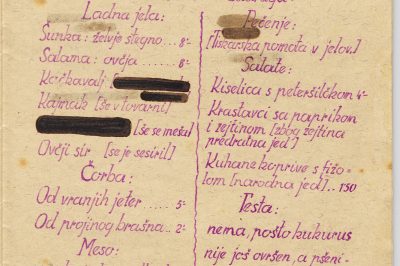 Ladna jela:
Šunka: želvje stegno ... 8-
Salama: ovčja ...... 8-
Kačkavalj
Kajmak [še v tovarni]
[še se meša]
Ovčji sir [se je sesiril]
Čorba:
Od vranjih jeter ..... 5-
Od projinog brašna .. 2-
Meso:
Pečenje:
[Tiskarska pomota v jelov.]
Salate:
Kiselica s peteršilčkom 4-
Krastavci sa paprikom
i zejtinom [zbog zejtina
predratna jed]
Kuhane koprive s fižo-
lom [narodna jed] .. 1·50
Testa:
nema, pošto kukurus
nije još ovršen, a pšeni-